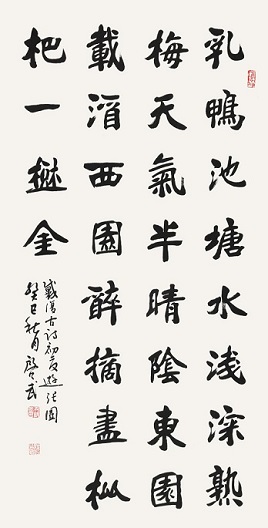 乳鴨池塘水浅深熟
梅天氣半晴陰東園
載酒西園醉摘盡枇
杷一樹金
戴復古詩初夏遊張園
癸巳秋月